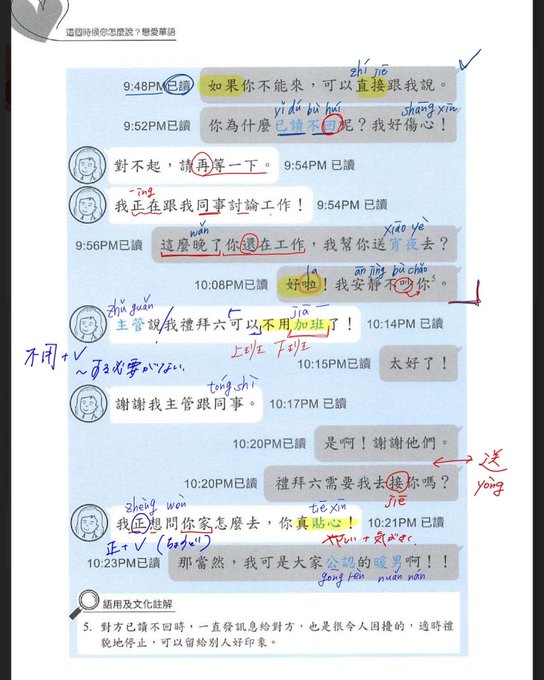 這個時候你怎麼說？戀愛華語
zhí jiē
9:48PM已讀 如果你不能來，可以直接跟我說。
yǐ dú bù huí shāng xīn
9:52PM已讀 你為什麼已讀不回呢？我好傷心！
對不起，請再等一下。 9:54PM 已讀
-ing
我正在跟我同事討論工作！ 9:54PM 已讀
wǎn xiāo yè
9:56PM已讀 這麼晚了你還在工作，我幫你送宵夜去？
la ān jìng bù chǎo
10:08PM已讀 好啦！我安靜不吵你5。
zhǔ guǎn jiā
主管說我禮拜六可以不用加班了！ 10:14PM 已讀
不用+V 上班 下班
〜する必要がない
10:15PM已讀 太好了！
tóng shì
謝謝我主管跟同事。 10:17PM 已讀
10:20PM已讀 是啊！謝謝他們。
送
10:20PM已讀 禮拜六需要我去接你嗎？
jiē
zhèng wèn tiē xīn
我正想問你家怎麼去，你真貼心！ 10:21PM 已讀
正+V (ちょうど)
10:23PM已讀 那當然，我可是大家公認的暖男啊！！
gōng rèn nuǎn nán
語用及文化註解
5. 對方已讀不回時，一直發訊息給對方，也是很令人困擾的，適時禮
貌地停止，可以留給別人好印象。